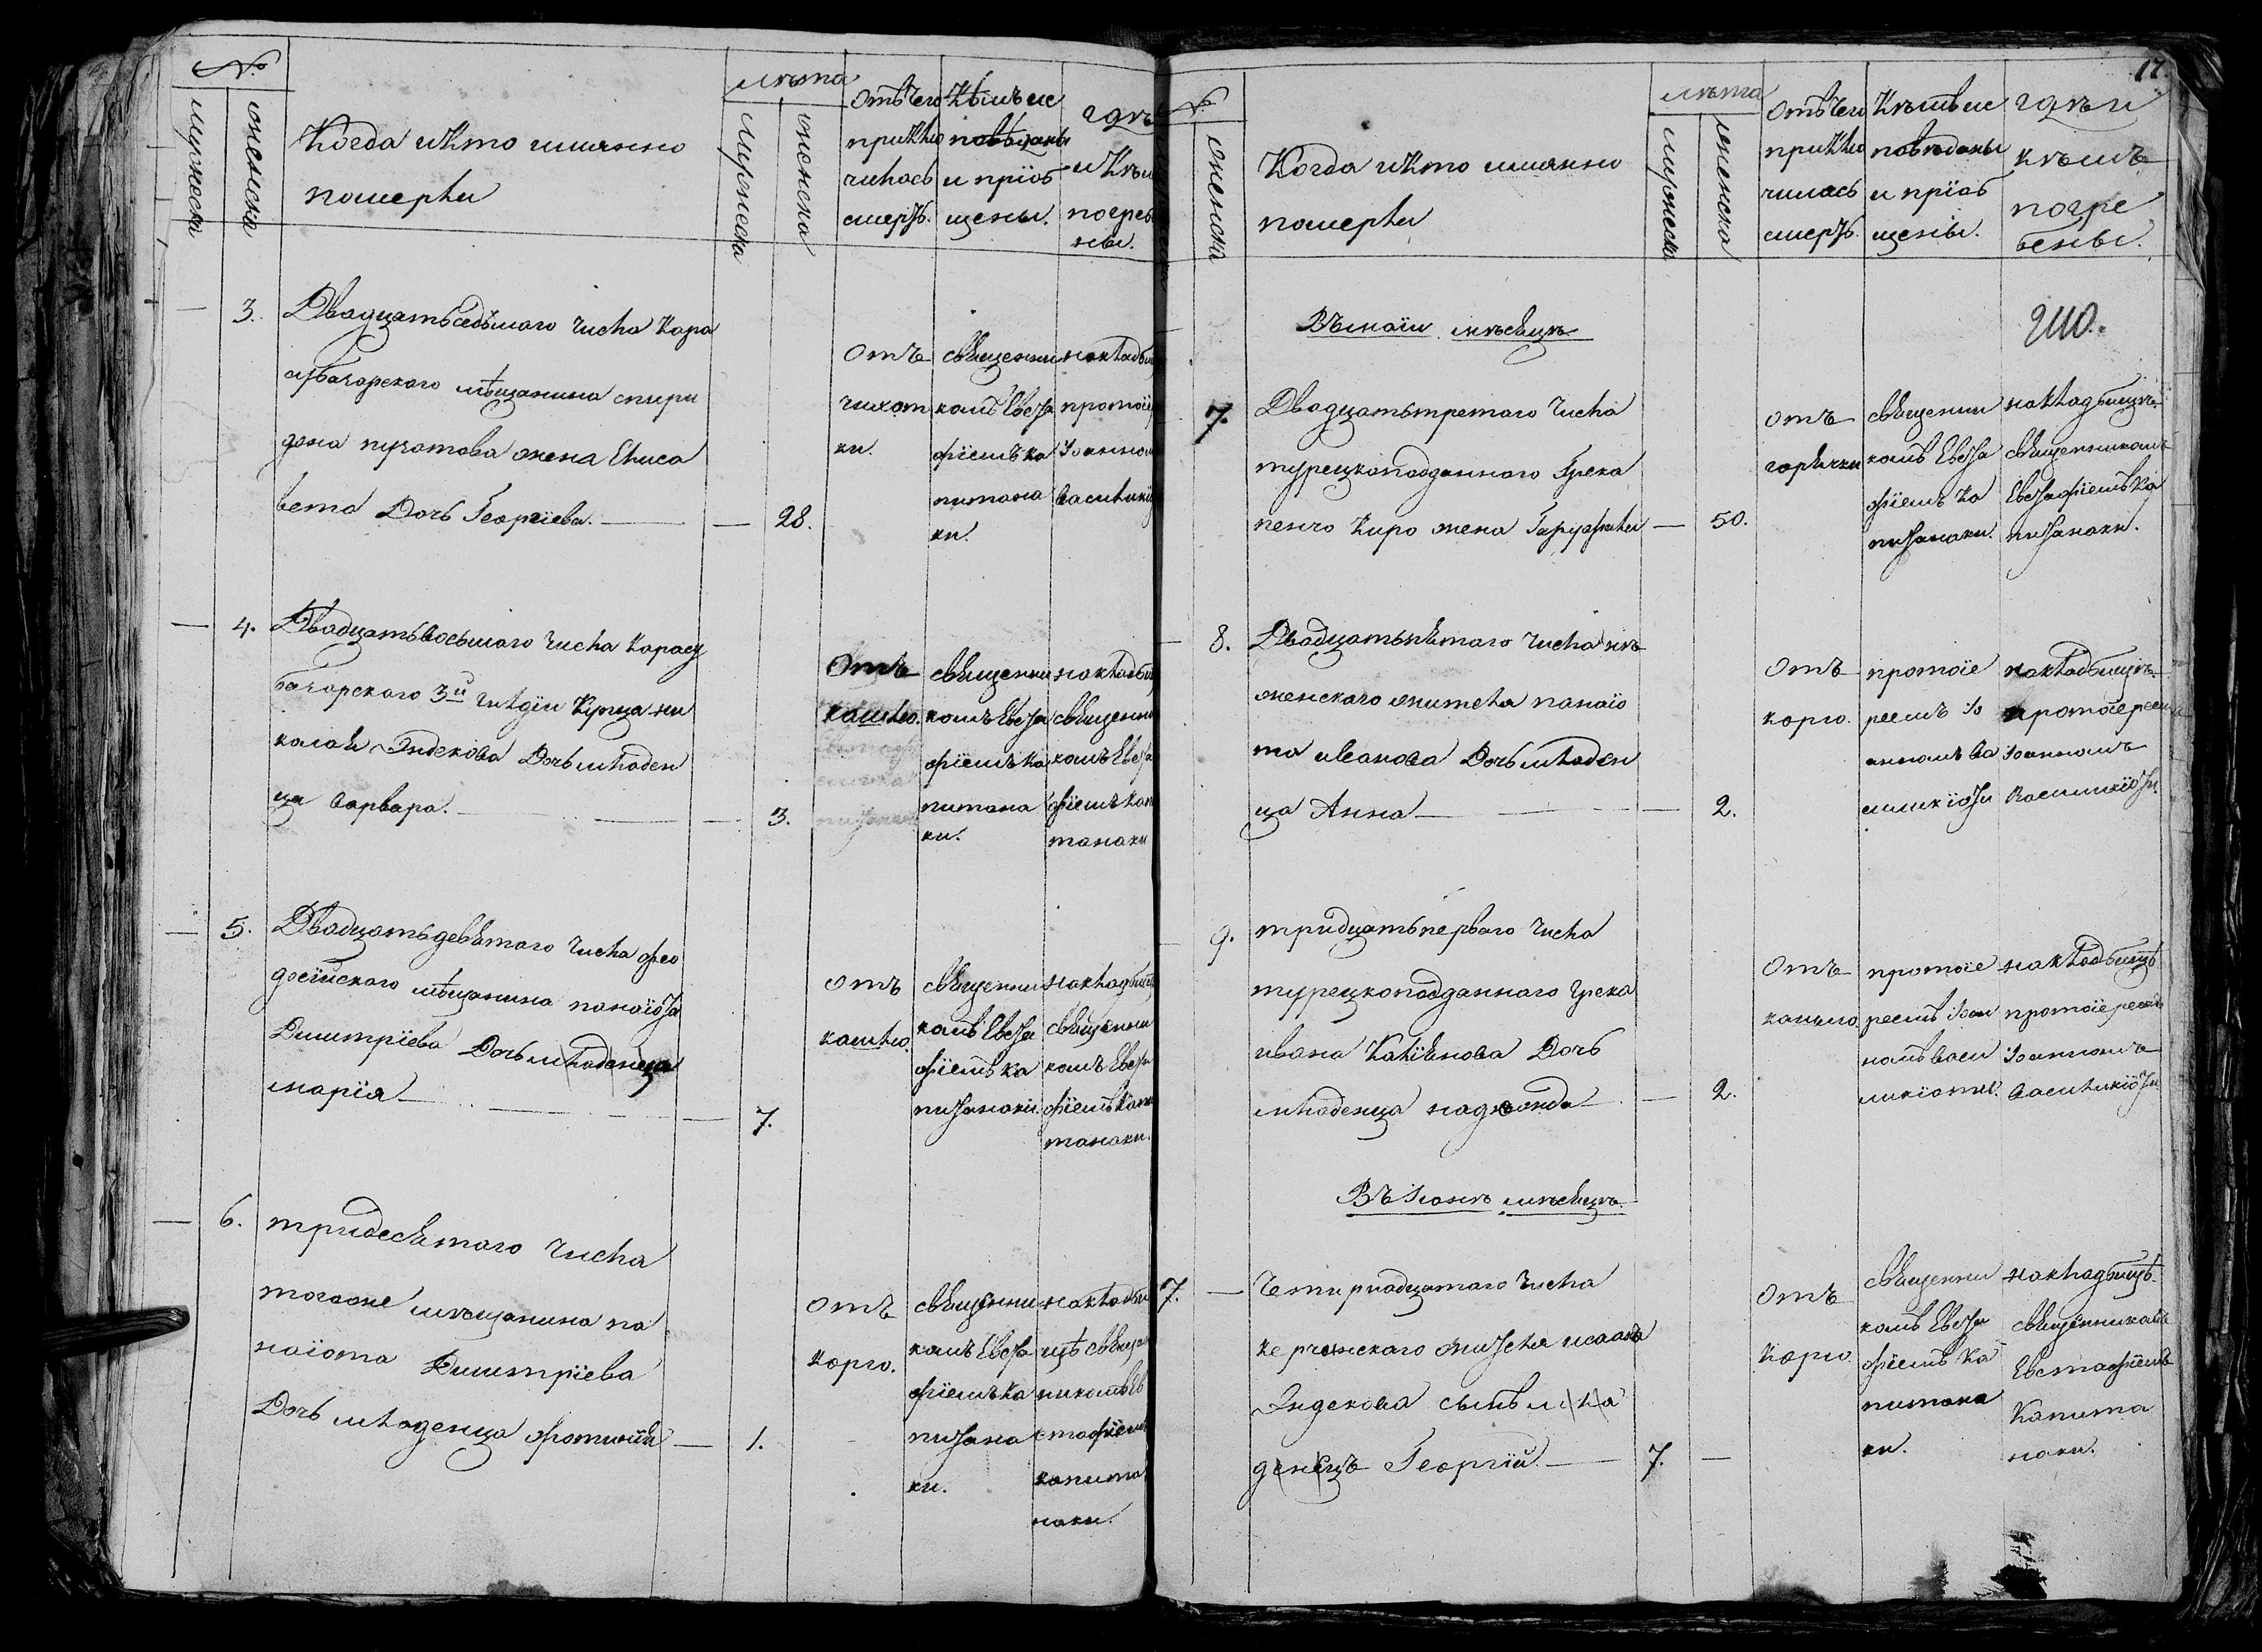 №
мужеска
женска
Когда и кто имянно
померли
лѣта
мужеска
женска
Отъ чего
приклю
чилась
смерть.
Кѣмъ ис
повѣданы
и пріоб
щены.
гдѣ
и кѣм
погребе
ны.
3.
Двадцать седьмаго числа Кара
субазарского мѣщанина спири
дона пучатова жена Елиса
вета Дочь Георгіева. — — 28.
отъ
чихот
ки.
священни
комъ Евста
фіемъ ка
питана
ки.
на кладби
протоіе
Іоанном
василикі
4.
Двадцать восьмаго числа Карасу
базарского 3й гилдіи Купца ни
колая Индекова Дочь младен
ца варвара. — — 3.
Отъ
кашлю.
священни
комъ Евста
фіемъ Ка
питана
ки.
на кладби
священни
комъ Евста
фіемъ кап
танаки
5.
Двадцать девятаго числа фео
досійского мѣщанина панаіота
Димитріева Дочь младенца
марія — — 7.
отъ
кашлю.
священни
комъ Евста
фіемъ ка
питанаки.
на кладбищ
священни
комъ Евста
фіемъ Капи
танаки.
6.
тридесятаго числа
тогоже мѣщанина па
наіота Димитріева
Дочь младенца фотинія — 1.
отъ
корю.
священни
комъ Евста
фіемъ Ка
питана
ки.
на кладби
щѣ священ
никомъ Ев
стафіемъ
капита
наки.
17.
№
женска
Когда и кто имянно
померли
лѣта
мужеска
женска
Отъ чего
приклю
чилась
смерть.
Кѣмъ ис
повѣданы
и пріоб
щены.
гдѣ и
кѣмъ
погре
бены.
Въ маіи мѣсяцѣ
7.
Двадцать третаго числа
турецкоподданного Грека
пенчо Киро жена Гаруфали — 50.
отъ
горячки
священни
комъ Евста
фіемъ Ка
питанаки.
на кладбищѣ
священникомъ
Евстафіемъ Ка
питанаки.
8.
Двадцать пятаго числа нѣ
женского жителя панаіо
та иванова Дочь младен
ца Анна — — 2.
отъ
корю.
протоіе
реемъ Іо
анномъ Ва
силикіоти
на кладбищѣ
протоіереем
Іоанномъ
Василикіоти.
9.
тридцать перваго числа
турецкоподданного Грека
ивана Каліянова Дочь
младенца надежда — 2.
отъ
кашлю.
протоіе
реемъ Іоан
номъ Васи
ликіоти.
на кладбищѣ
протоіереемъ
Іоанномъ
Василикіоти
Въ Іюнѣ мѣсяцѣ.
7. —
Четириадцатаго числа
керченского жителя исаака
Индекова сынъ мла
денецъ Георгій — 7. —
отъ
Корю.
священни
комъ Евста
фіемъ Ка
питана
ки.
на кладбищѣ
священникомъ
Евстафіемъ
Капита
наки.